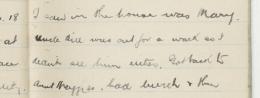 18 I saw in the house was Mary.
at uncle Bill was out for a walk so I
didn't see him either. Got back to
Aunt Maggies, had lunch & then